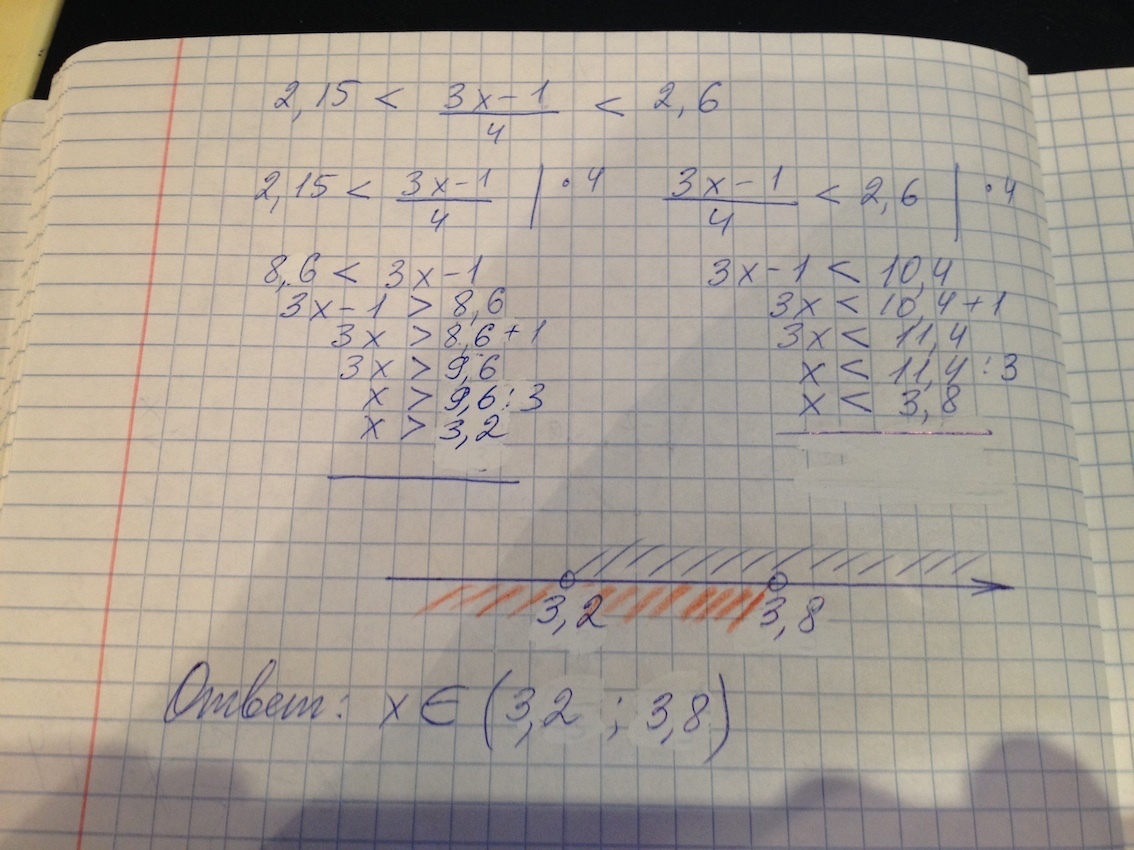 2,15 < (3x-1)/4 < 2,6
2,15 < (3x-1)/4 | · 4
8,6 < 3x-1
3x-1 > 8,6
3x > 8,6+1
3x > 9,6
x > 9,6:3
x > 3,2
(3x-1)/4 < 2,6 | · 4
3x-1 < 10,4
3x < 10,4+1
3x < 11,4
x < 11,4:3
x < 3,8
3,2 3,8
Ответ: x ∈ (3,2 ; 3,8)